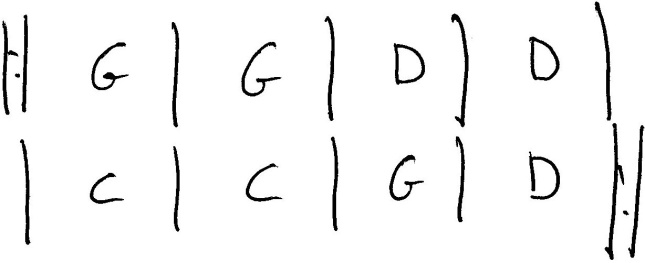 |: G | G | D | D |
| C | C | G | D :|